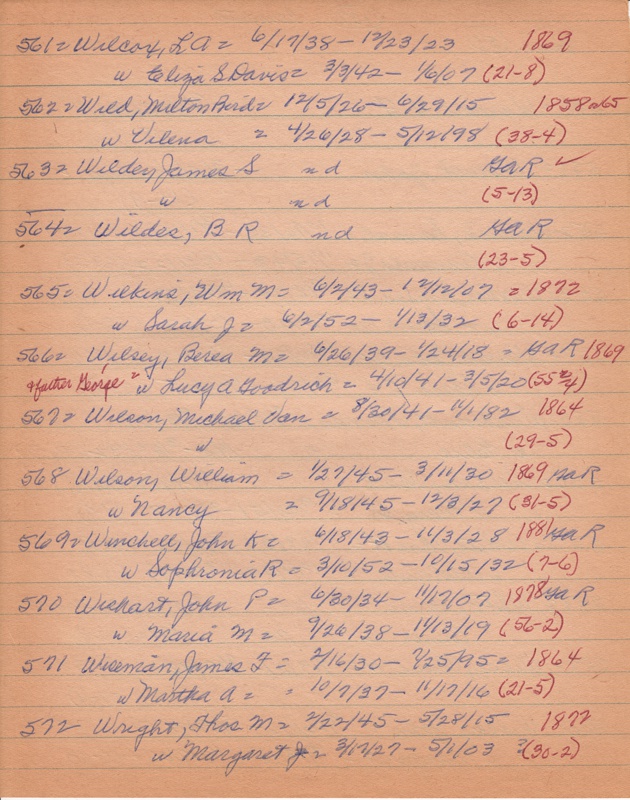 561 = Wilcox, L A = 6/17/38 - 12/23/23 1869
w Eliza S Davis = 3/3/42 - 1/6/07 (21-8)
562 = Wild, Milton Bird = 12/5/26 - 6/29/15 1858 or 65
w Vilena = 4/26/28 - 5/12/98 (38-4)
563 = Wildey, James S nd GaR ✓
w nd (5-13)
564 = Wildes, B R nd GaR
(23-5)
565 = Wilkins, Wm M = 6/2/43 - 12/12/07 = 1872
w Sarah J = 6/2/52 - 1/13/32 (6-14)
566 = Wilsey, Berea M = 6/26/39 - 1/24/18 = GaR 1869
& father George = w Lucy A Goodrich = 4/10/41 - 3/5/20
567 = Wilson, Michael Van = 8/30/41 - 11/1/82 1864
w (29-5)
568 Wilson, William = 1/27/45 - 3/11/30 1869 GaR
w Nancy = 9/18/45 - 12/3/27 (31-5)
569 = Winchell, John K = 6/18/43 - 11/3/28 1881 GaR
w Sophronia R = 3/10/52 - 10/15/32 (7-6)
570 Wichart, John P = 6/30/34 - 11/17/07 1878 GaR
w Maria M = 9/26/38 - 11/13/19 (56-2)
571 Wiseman, James F = 2/16/30 - 7/25/95 = 1864
w Martha A = = 10/7/37 - 11/17/16 (21-5)
572 Wright, Thos M = 2/22/45 - 5/28/15 1872
w Margaret J = 3/17/27 - 5/1/03 (30-2)